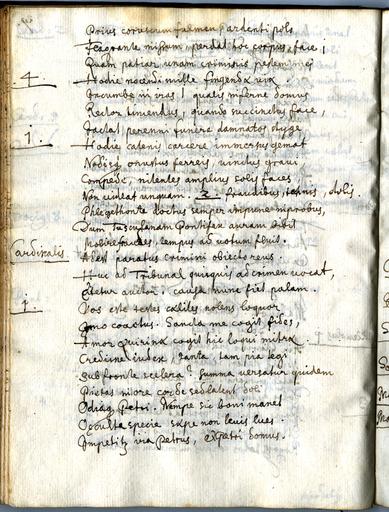 Prius coruscum fulmen, ardenti polo
Flagrante missum, perdat hoc corpus, face,
Quam patiar unam criminis
4. Hodie nocendi mille fingendæ viæ.
Incumbe in iras! qualis infernæ domus
Rector timendus, quando succinctus face,
Iactat perenni funera damnatos styge
1. Hodie catenis carcere immersus gemat
onustus ferreis, vinctus gravi
Compede, nitentes amplius solis faces
Non videat unquam. 3. fraudibus, technis, dolis.
Phlegethonte doctus semper impune improbus,
Dum Tusculanum Pontifex auram bibit
tempus ad votum fluit.
Cardinalis. Adest paratus crimini obiecto reus.
Huc ad Tribunal quisquis ad crimen vocat,
Citetur auctor. causa nunc fiet palam.
1. Vos este testes cælites nolens loquor
Imo coactus. Sancta me cogit fides,
Amor Quirinæ cogit hic
Credisne iudex, tanta, tam pia
sub fronte scelera? summa versatur quidem
Pietas in ore corde sed latent doli
Petri. Nempe sic boni manet
Occulta specie sæpe non levis lues.
Impetitæ Petrus, domus.